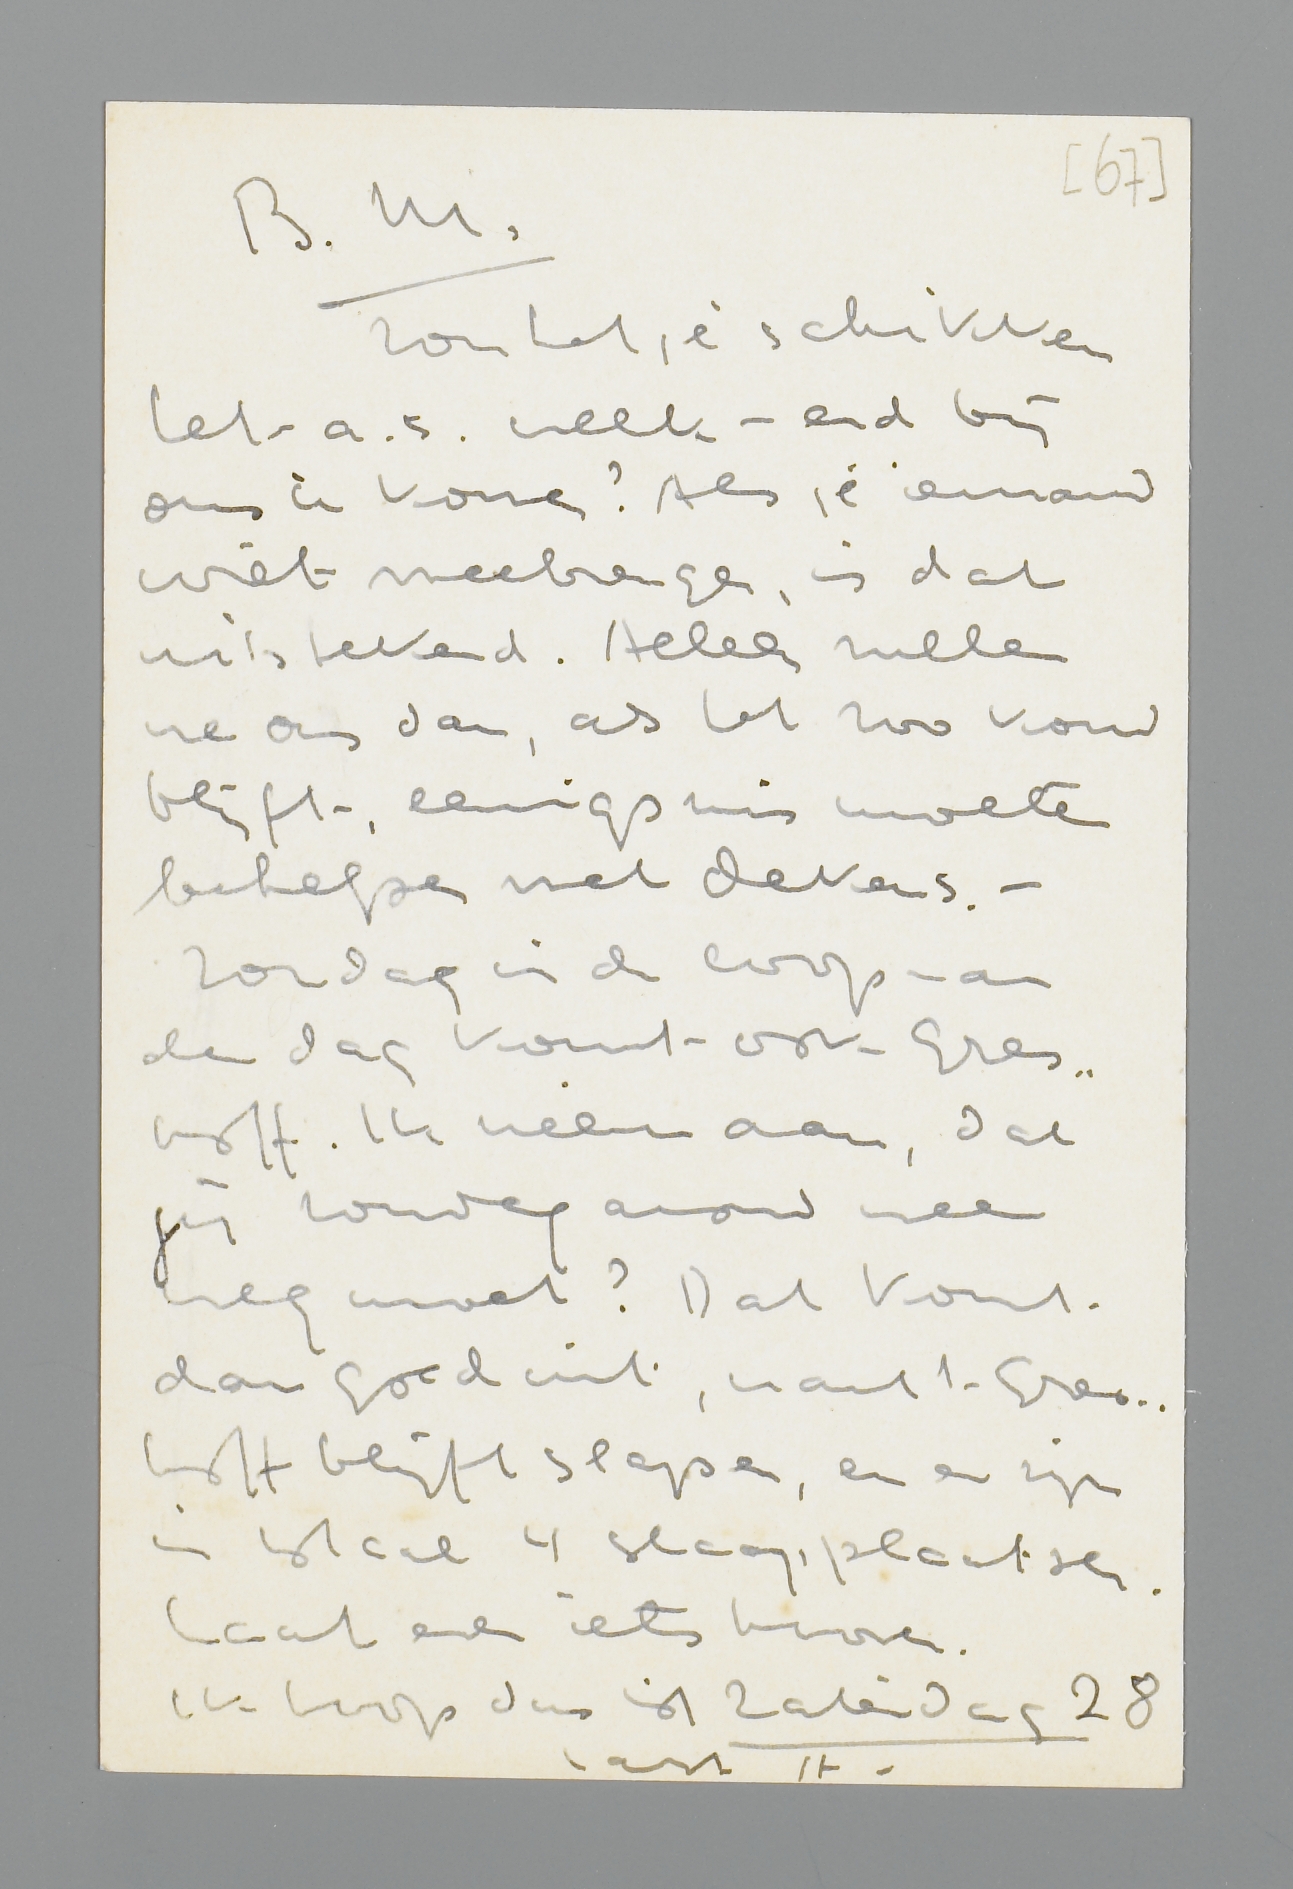 [67]
B. M.
Zou het je schikken
het a.s. week-end bij
ons te komen? Als je iemand
wilt meebrengen, is dat
uitstekend. Alleen zullen
we ons dan, als het zoo koud
blijft, eenigszins moeten
behelpen met dekens. -
Zondag in de loop van
den dag komt ook Gres„
hoff. Ik neem aan, dat
jij zondag avond weer
weg moet? Dat komt
dan goed uit, want Gres„
hoff blijft slapen, en er zijn
in totaal 4 slaapplaatsen.
Laat even iets hooren.
Ik hoop dus tot Zaterdag 28